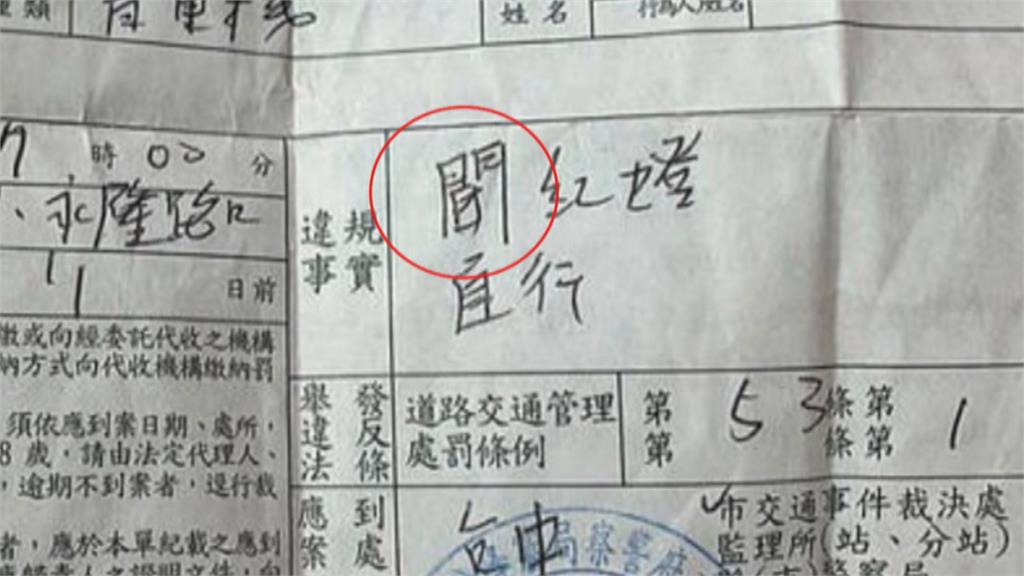 類
姓名
時 00 分
永隆路口
11 日前
違規事實
紅燈
直行
繳或向經委託代收之機構
納方式向代收機構繳納罰
須依應到案日期、處所，
8 歲，請由法定代理人、
，逾期不到案者，逕行裁
者，應於本單紀載之應到
舉發違反法條
道路交通管理處罰條例
第 53 條第 1
第 條第
應到案處
台中
市交通事件裁決處
監理所(站、分站)
局察警府